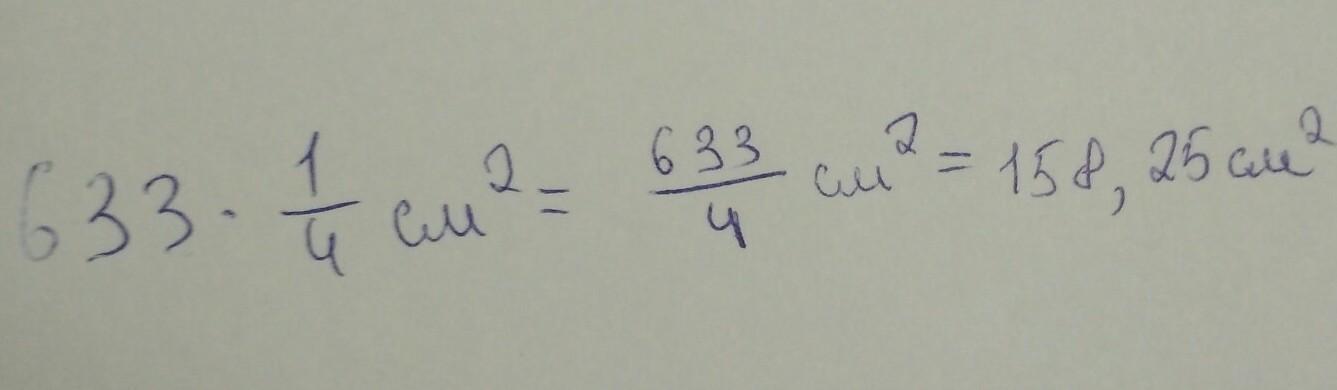 633 · 1/4 см² = 633/4 см² = 158,25 см²